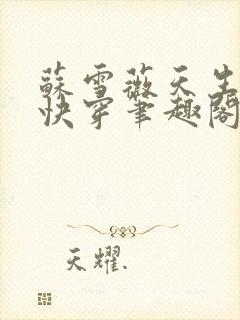 蘇雪薇天生
快穿筆趣閣
天耀.